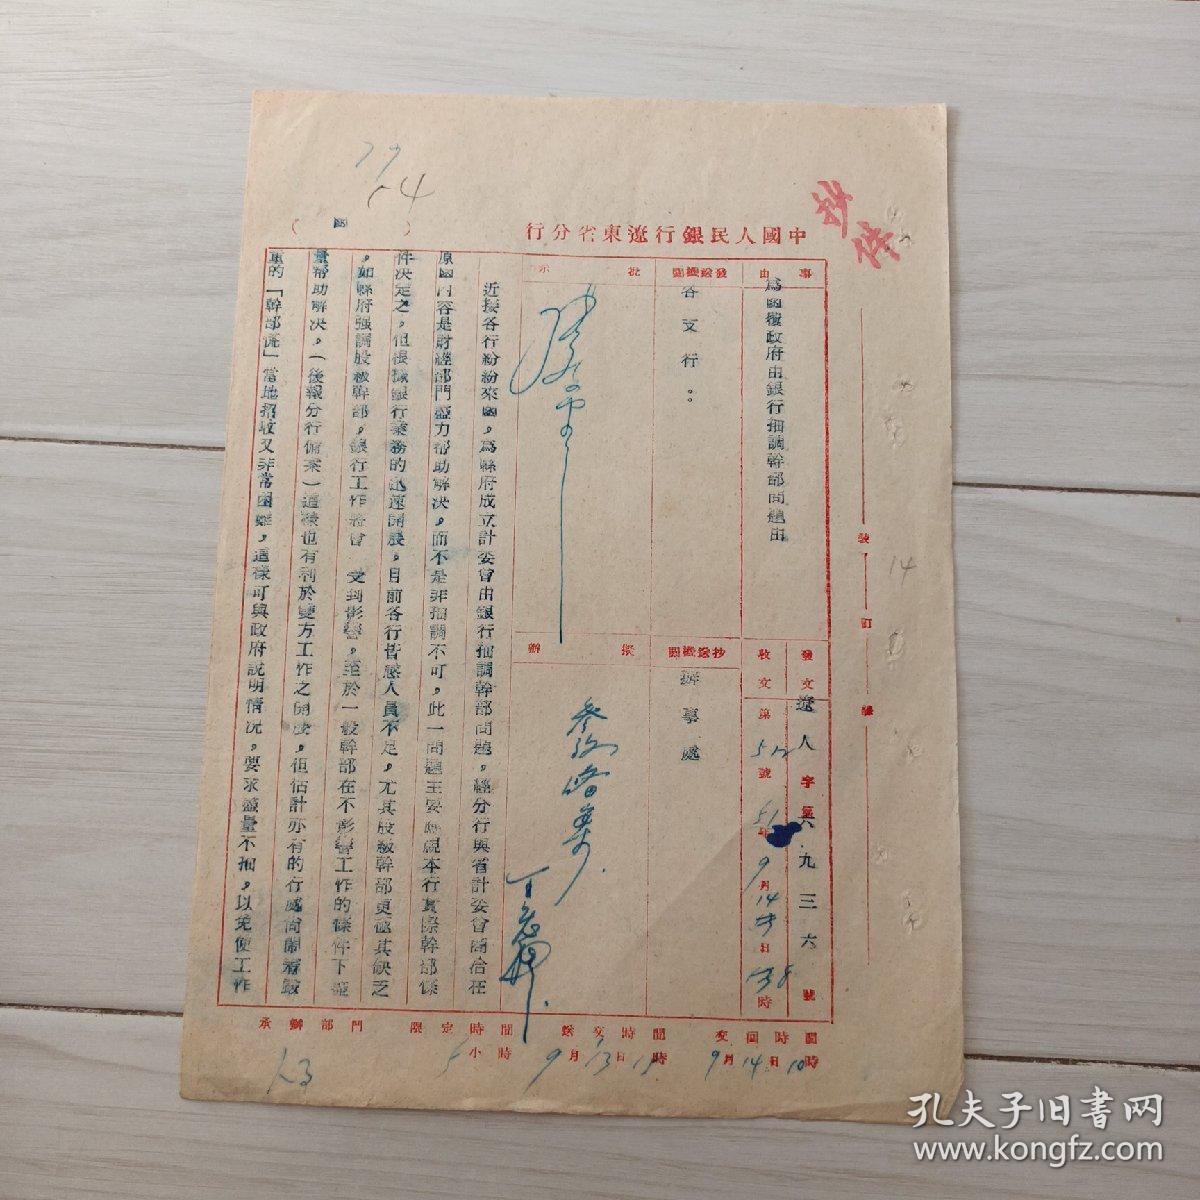 抄件
中國人民銀行遼東省分行
(函)
事由
為函復政府由銀行抽調幹部問題由
發送機關
各支行。
批示
抄送機關
辦事處
擬辦
參改 備案
發文遼人字第六九三六號
收文第 號 51年9月14日 時
近接各行紛紛來函,為縣府成立計委會由銀行抽調幹部問題,經分行與省計委會商洽在
原函內容是財經部門盡力幫助解決,而不是非抽調不可,此一問題主要應視本行實際幹部條
件決定之,但根據銀行業務的迅速開展,目前各行皆感人員不足,尤其股級幹部更極其缺乏
,如縣府强調股級幹部,銀行工作將會 受到影響,至於一般幹部在不影響工作的條件下盡
量幫助解決。(後報分行備案)這樣也有利於雙方工作之開展。但估計亦有的行處尚鬧着嚴
重的「幹部慌」當地招收又非常困難,這樣可與政府説明情况,要求盡量不抽,以免使工作
裝 訂 線
交回時間 9月14日10時
送交時間 9月13日 時
限定時間 5小時
承辦部門
孔夫子旧书网
www.kongfz.com